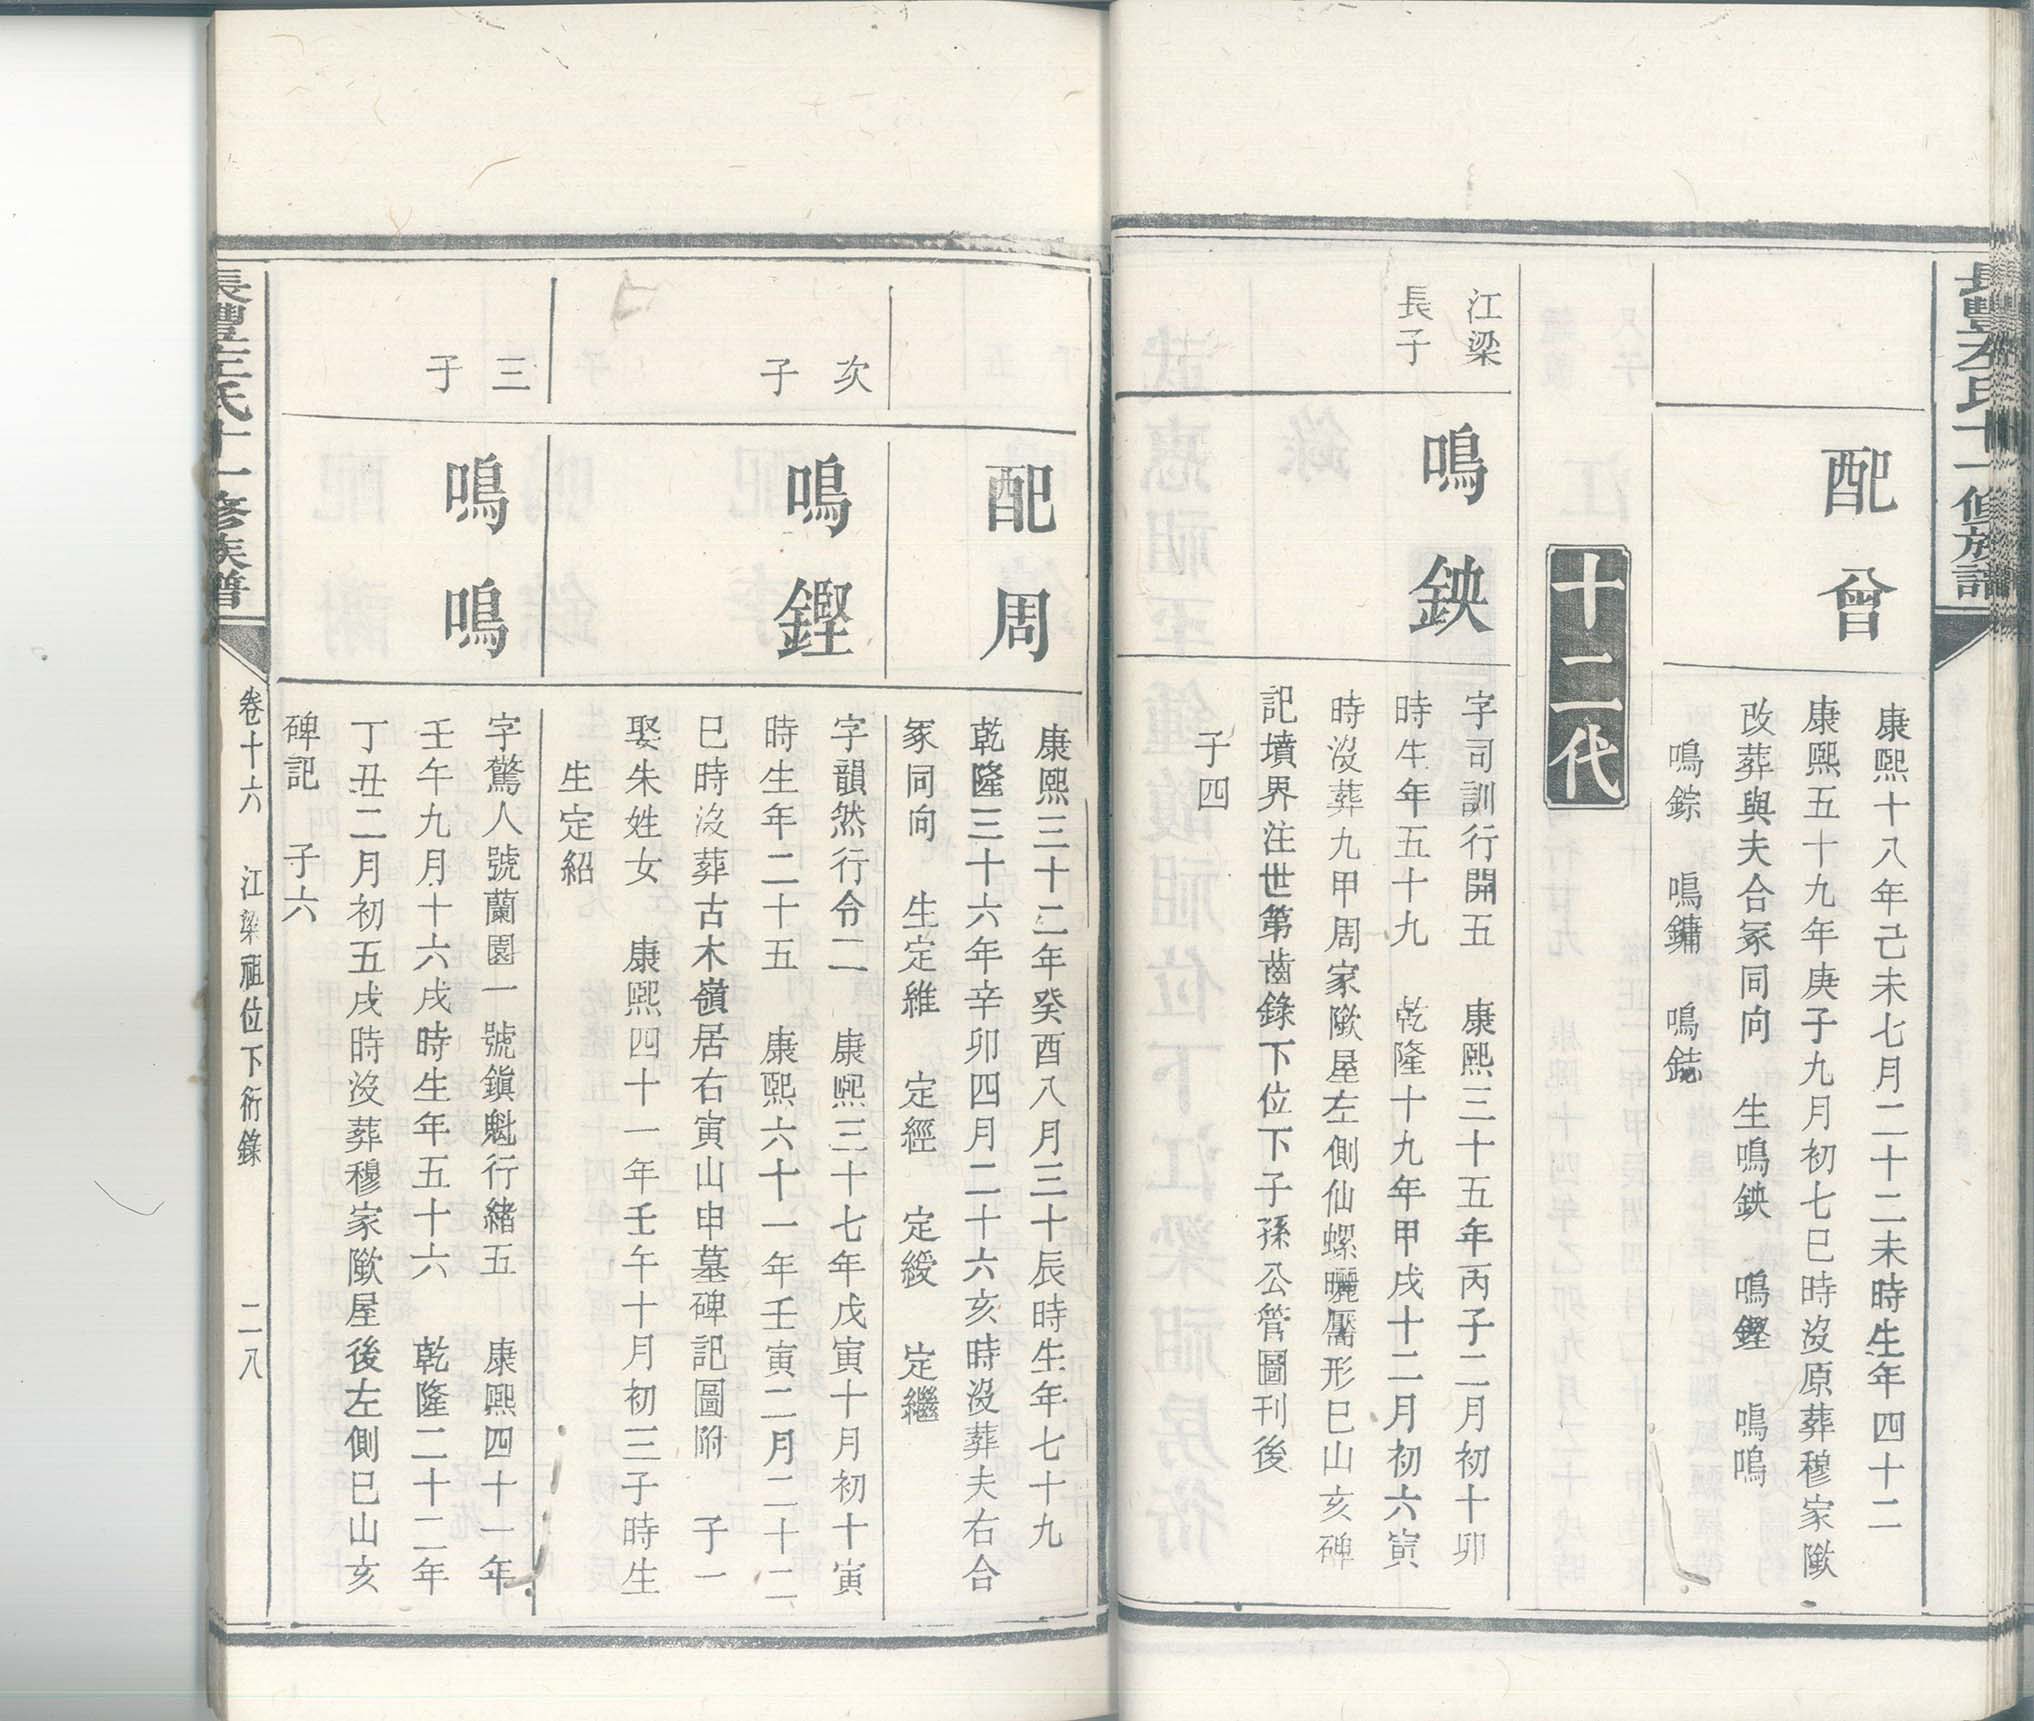 長豐左氏十一修族譜
配曾
康熙十八年己未七月二十二未時生年四十二
康熙五十九年庚子九月初七巳時沒原葬穆家歘
改葬與夫合冢同向 生鳴鉠 鳴鏗 鳴鳴
鳴錝 鳴鏞 鳴鋕
十二代
江梁
長子
鳴鉠
字司訓行開五 康熙三十五年丙子二月初十卯
時生年五十九 乾隆十九年甲戌十二月初六寅
時沒葬九甲周家歘屋左側仙螺曬靨形巳山亥碑
記墳界注世第齒錄下位下子孫公管圖刊後
子四
配周
康熙三十二年癸酉八月三十辰時生年七十九
乾隆三十六年辛卯四月二十六亥時沒葬夫右合
冢同向 生定維 定經 定綬 定繼
次
子
鳴鏗
字韻然行令二 康熙三十七年戊寅十月初十寅
時生年二十五 康熙六十一年壬寅二月二十二
巳時沒葬古木嶺居右寅山申墓碑記圖附 子一
娶朱姓女 康熙四十一年壬午十月初三子時生
生定紹
三
子
鳴鳴
字驚人號蘭園一號鎮魁行緒五 康熙四十一年
壬午九月十六戌時生年五十六 乾隆二十二年
丁丑二月初五戌時沒葬穆家歘屋後左側巳山亥
碑記 子六
長豐左氏十一修族譜
卷十六 江梁祖位下衍錄 二八